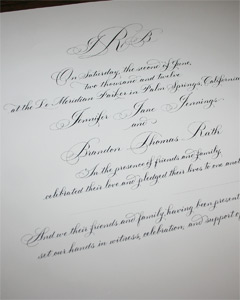 JRB
On Saturday, the second of June,
two thousand and twelve
at the Le Meridian Parker in Palm Springs, California
Jennifer Jane Jennings
and
Brandon Thomas Rath
In the presence of friends and family,
celebrated their love and pledged their lives to one
And we their friends and family, having been present
set our hands in witness, celebration, and support of